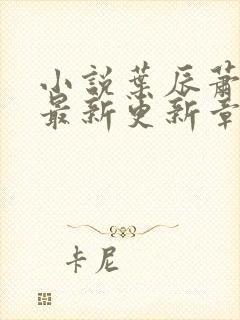 小說葉辰蕭
最新更新章
卡尼